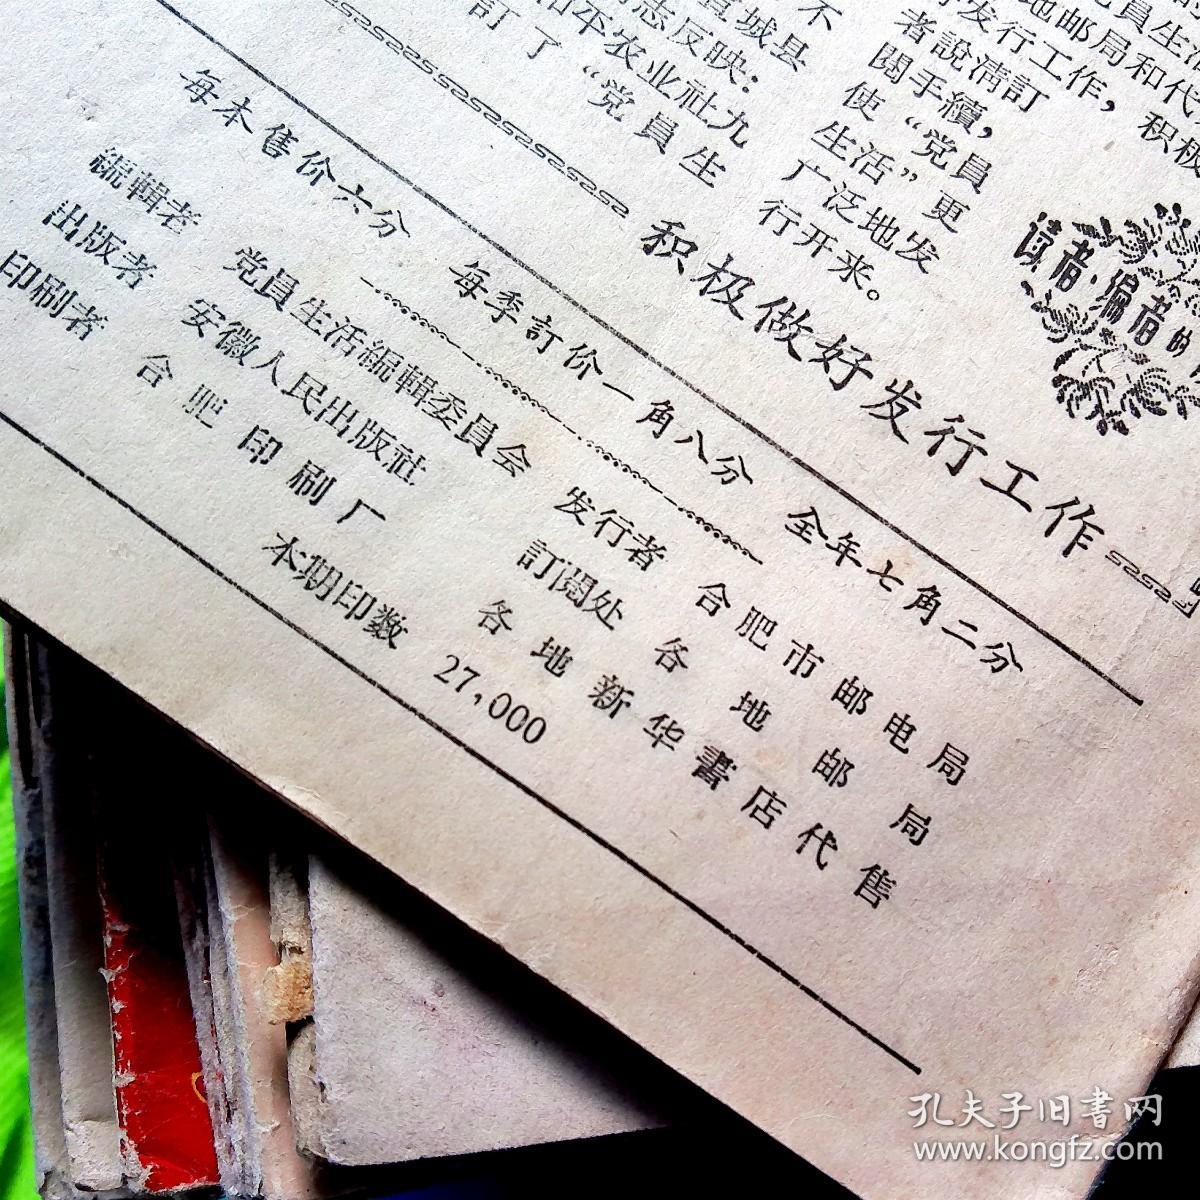 不
宣城县
同志反映:
和平农业社九
訂了“党員生
党員生活
发行工作,积极
地邮局和代
者說清訂
閱手續,
使“党員
生活”更
广泛地发
行开来。
读者·编者的
积极做好发行工作
每本售价六分 每季訂价一角八分 全年七角二分
編輯者 党員生活編輯委員会 发行者 合肥市邮电局
出版者 安徽人民出版社 訂閱处 各地邮局
印刷者 合肥印刷厂 各地新华書店代售
本期印数 27,000
孔夫子旧書网
www.kongfz.com